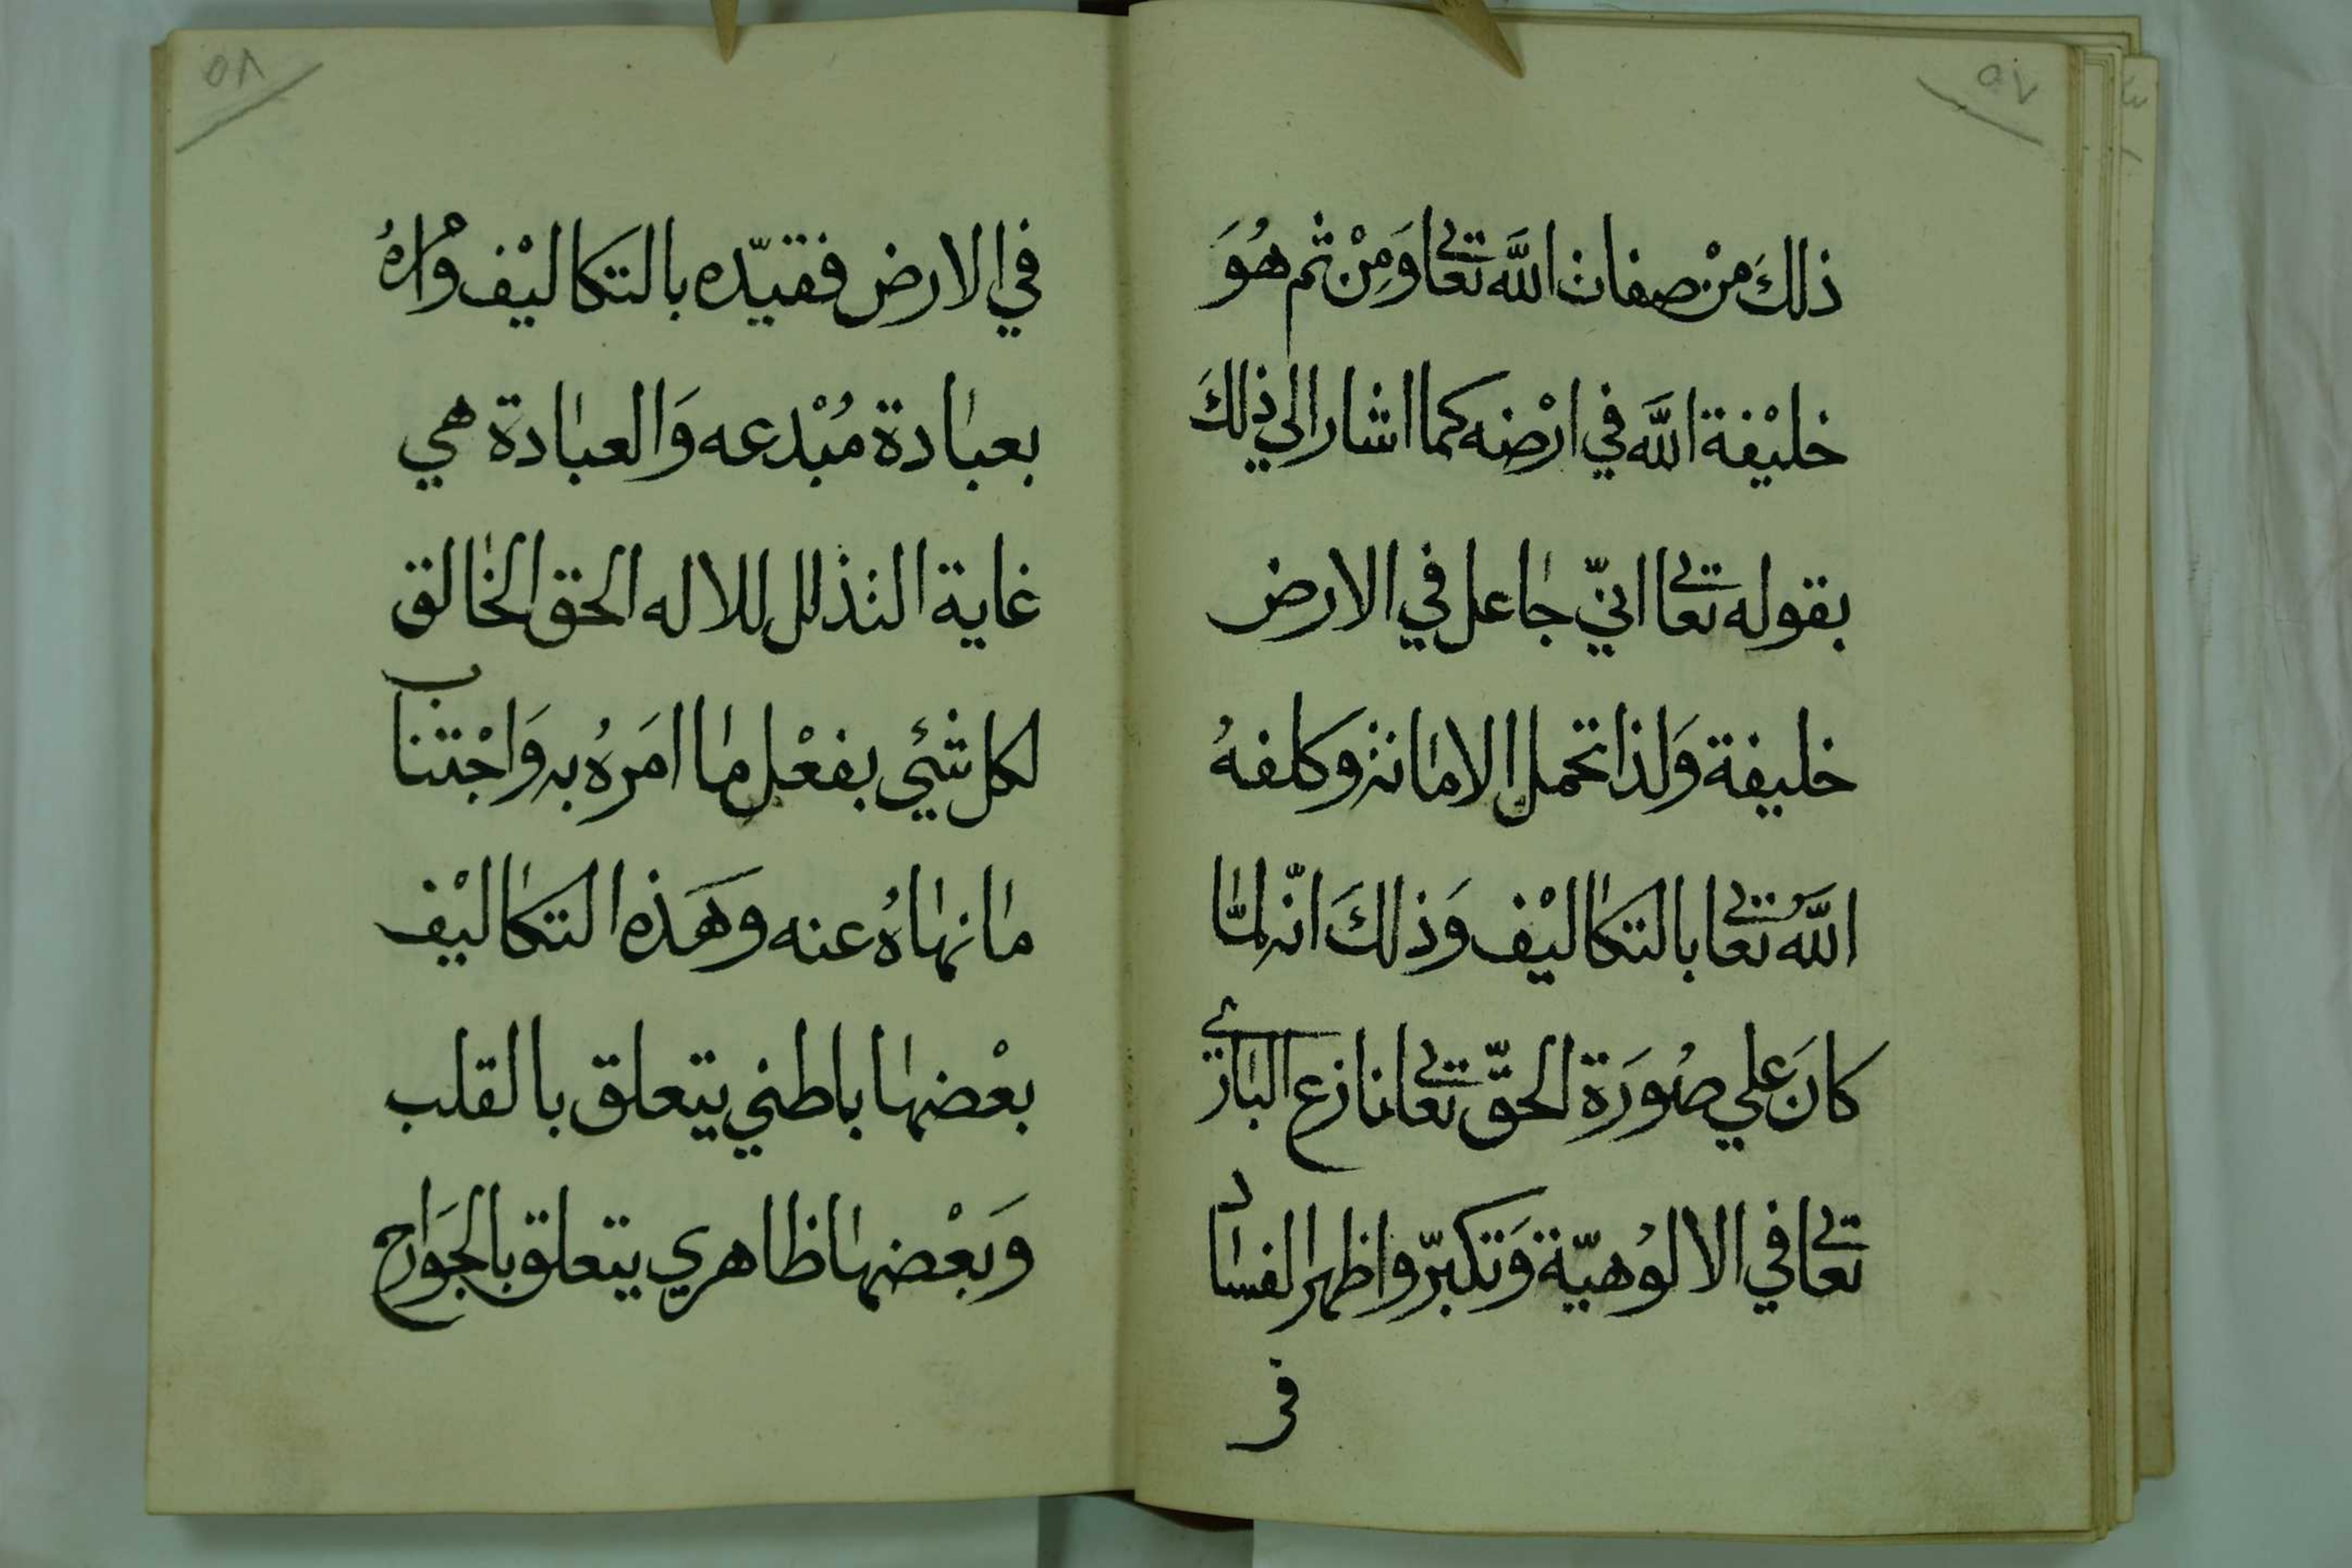 ٥٧
ذلكَ منْ صفات اللّٰه تعالى وَمِنْ ثم هُوَ
خليْفة اللّٰه في ارْضه كما اشار الي ذلكَ
بقوله تعالى انيّ جاعل في الارض
خليفة وَلذا تحمل الامانة وكلفهُ
اللّٰهُ تعالى بالتكاليْف وَذلكَ انّه لمّا
كانَ علي صُورَة الحقّ تعالى نازع الباري
تعالى في الالوُهيّة وَتكبّر واظهر الفساد
في
٥٨
في الارض فقيّده بالتكاليْف وامرهُ
بعبادة مُبْدعه وَالعبادة هي
غاية التذلل للاله الحق الخالق
لكل شئي بفعْل ما امَرهُ به وَاجْتناب
ما نهاهُ عنه وهَذه التكاليْف
بعْضها باطني يتعلق بالقلب
وَبعْضها ظاهري يتعلق بالجوَارح